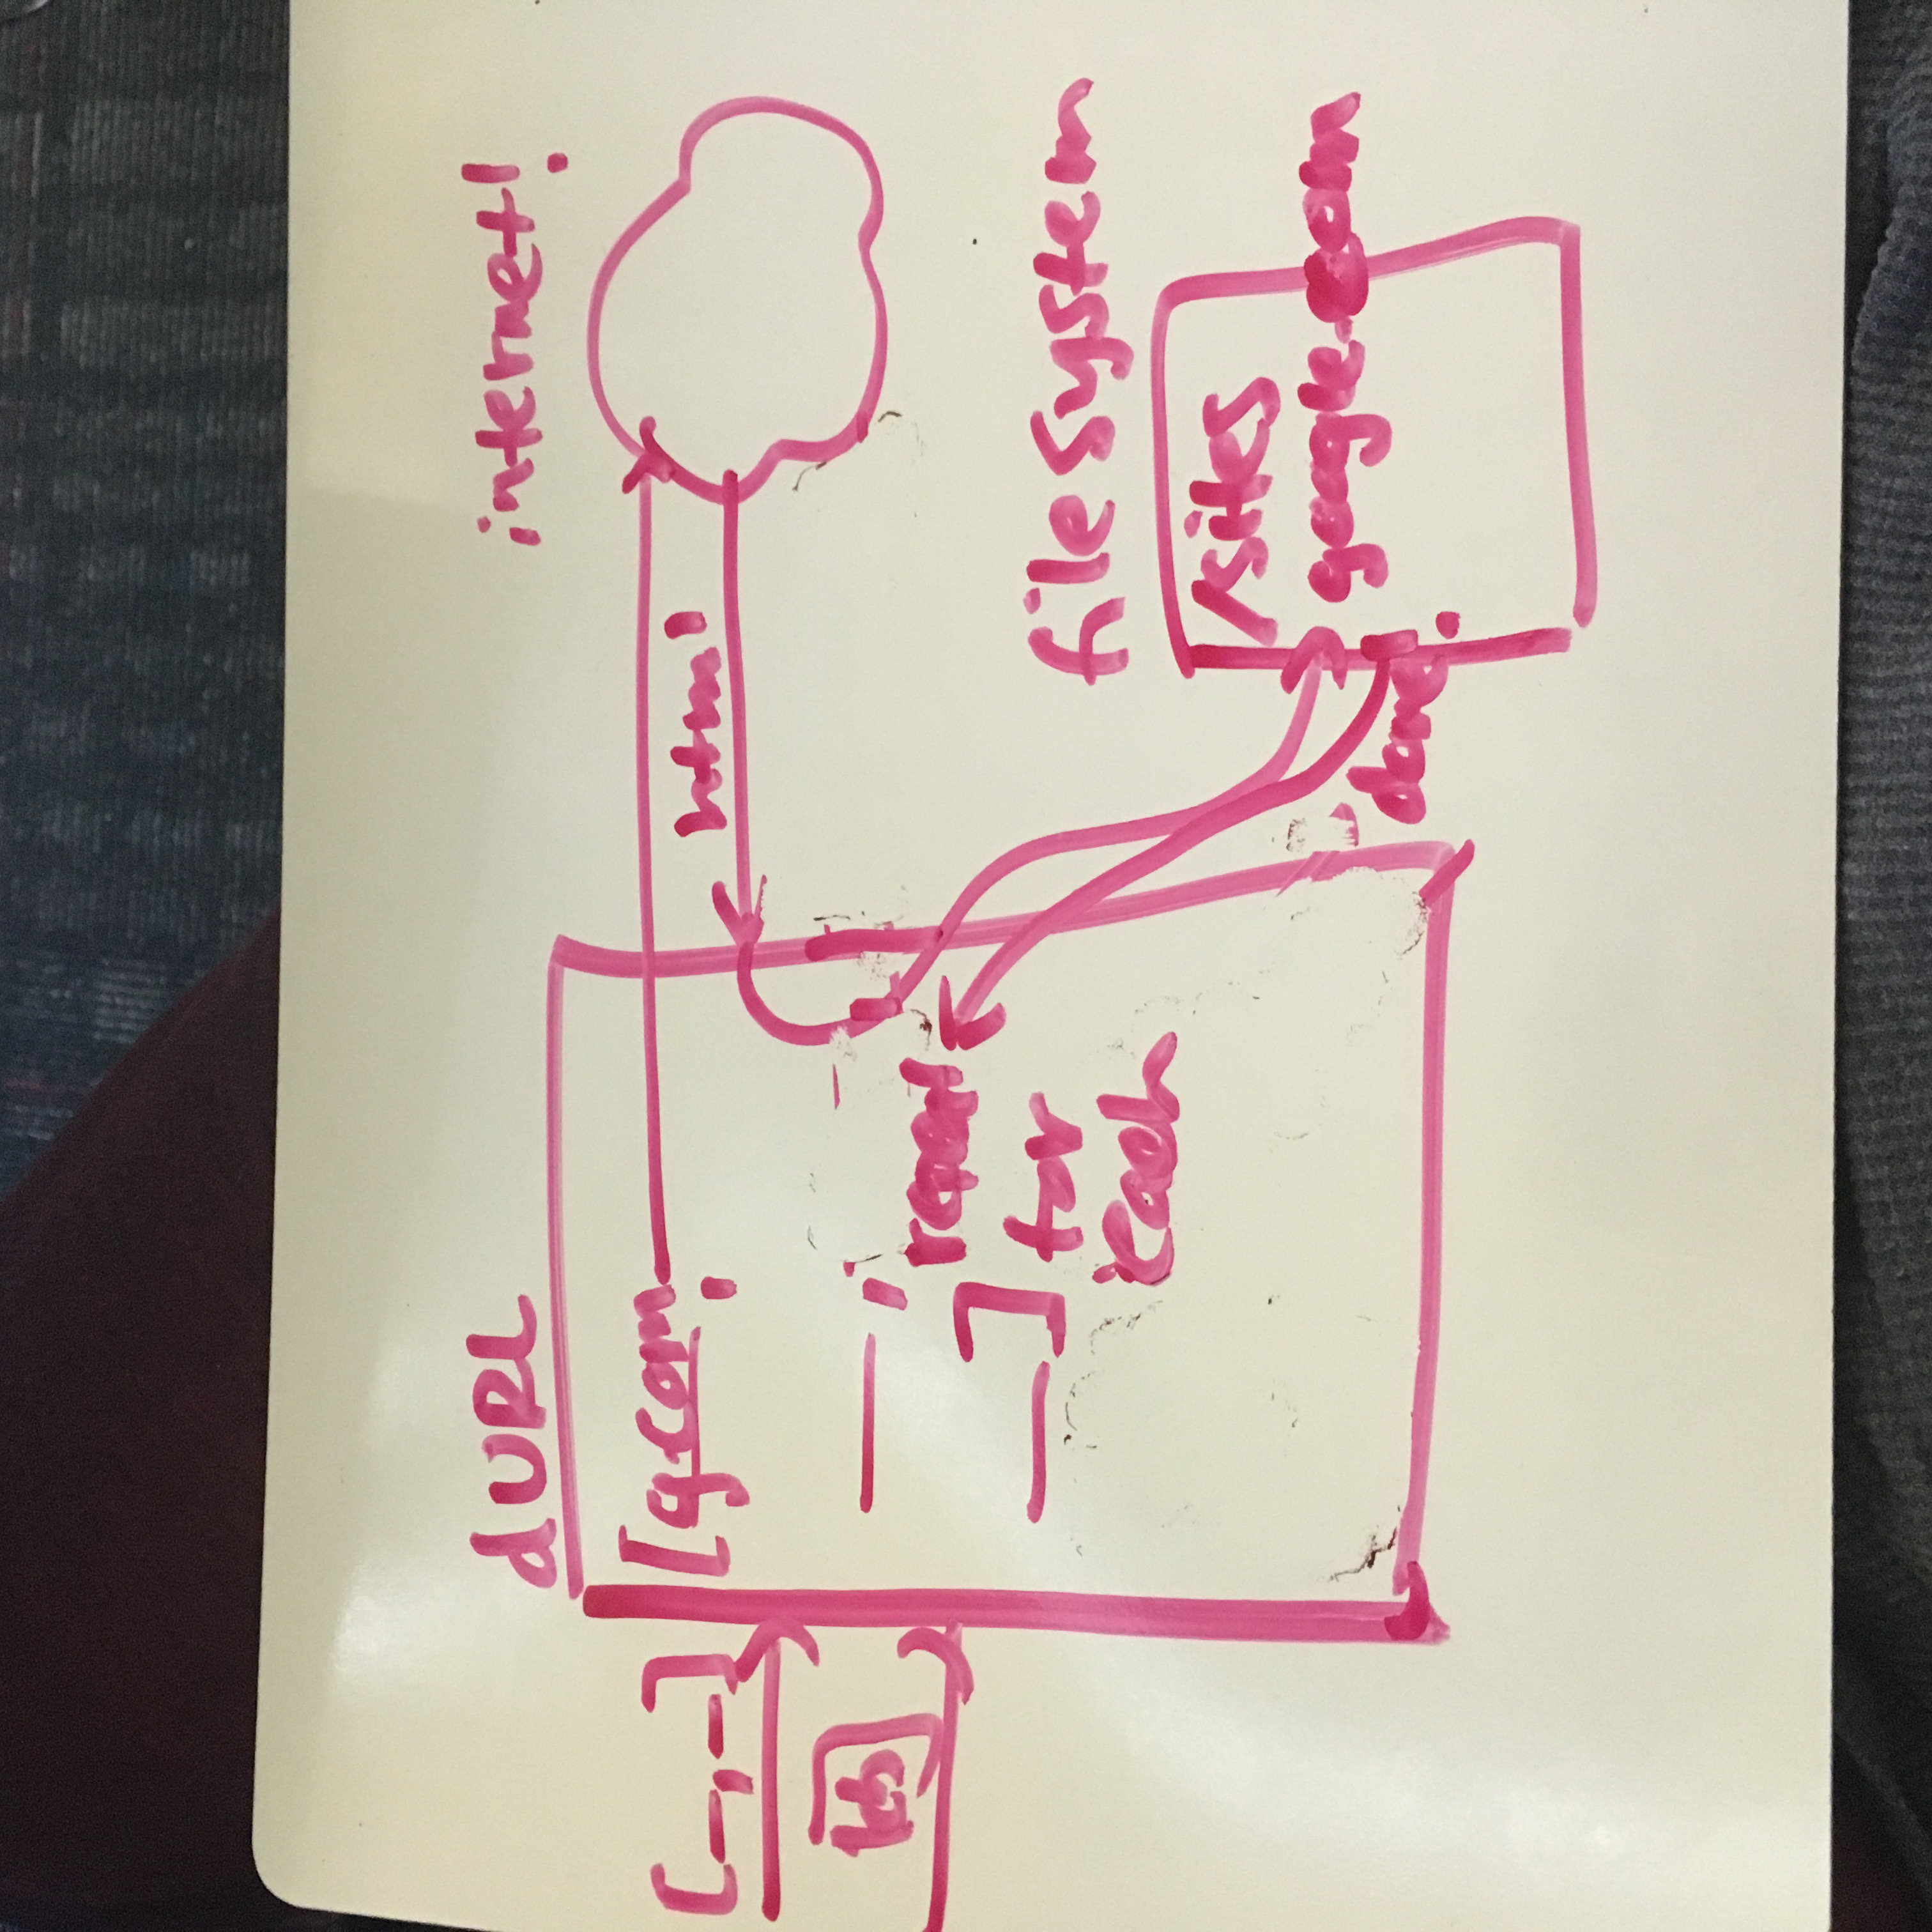 dURL
internet!
[_,_]
[g.com,
html
___,
repeat
___]
for
each
filesystem
/sites
google.com
done!